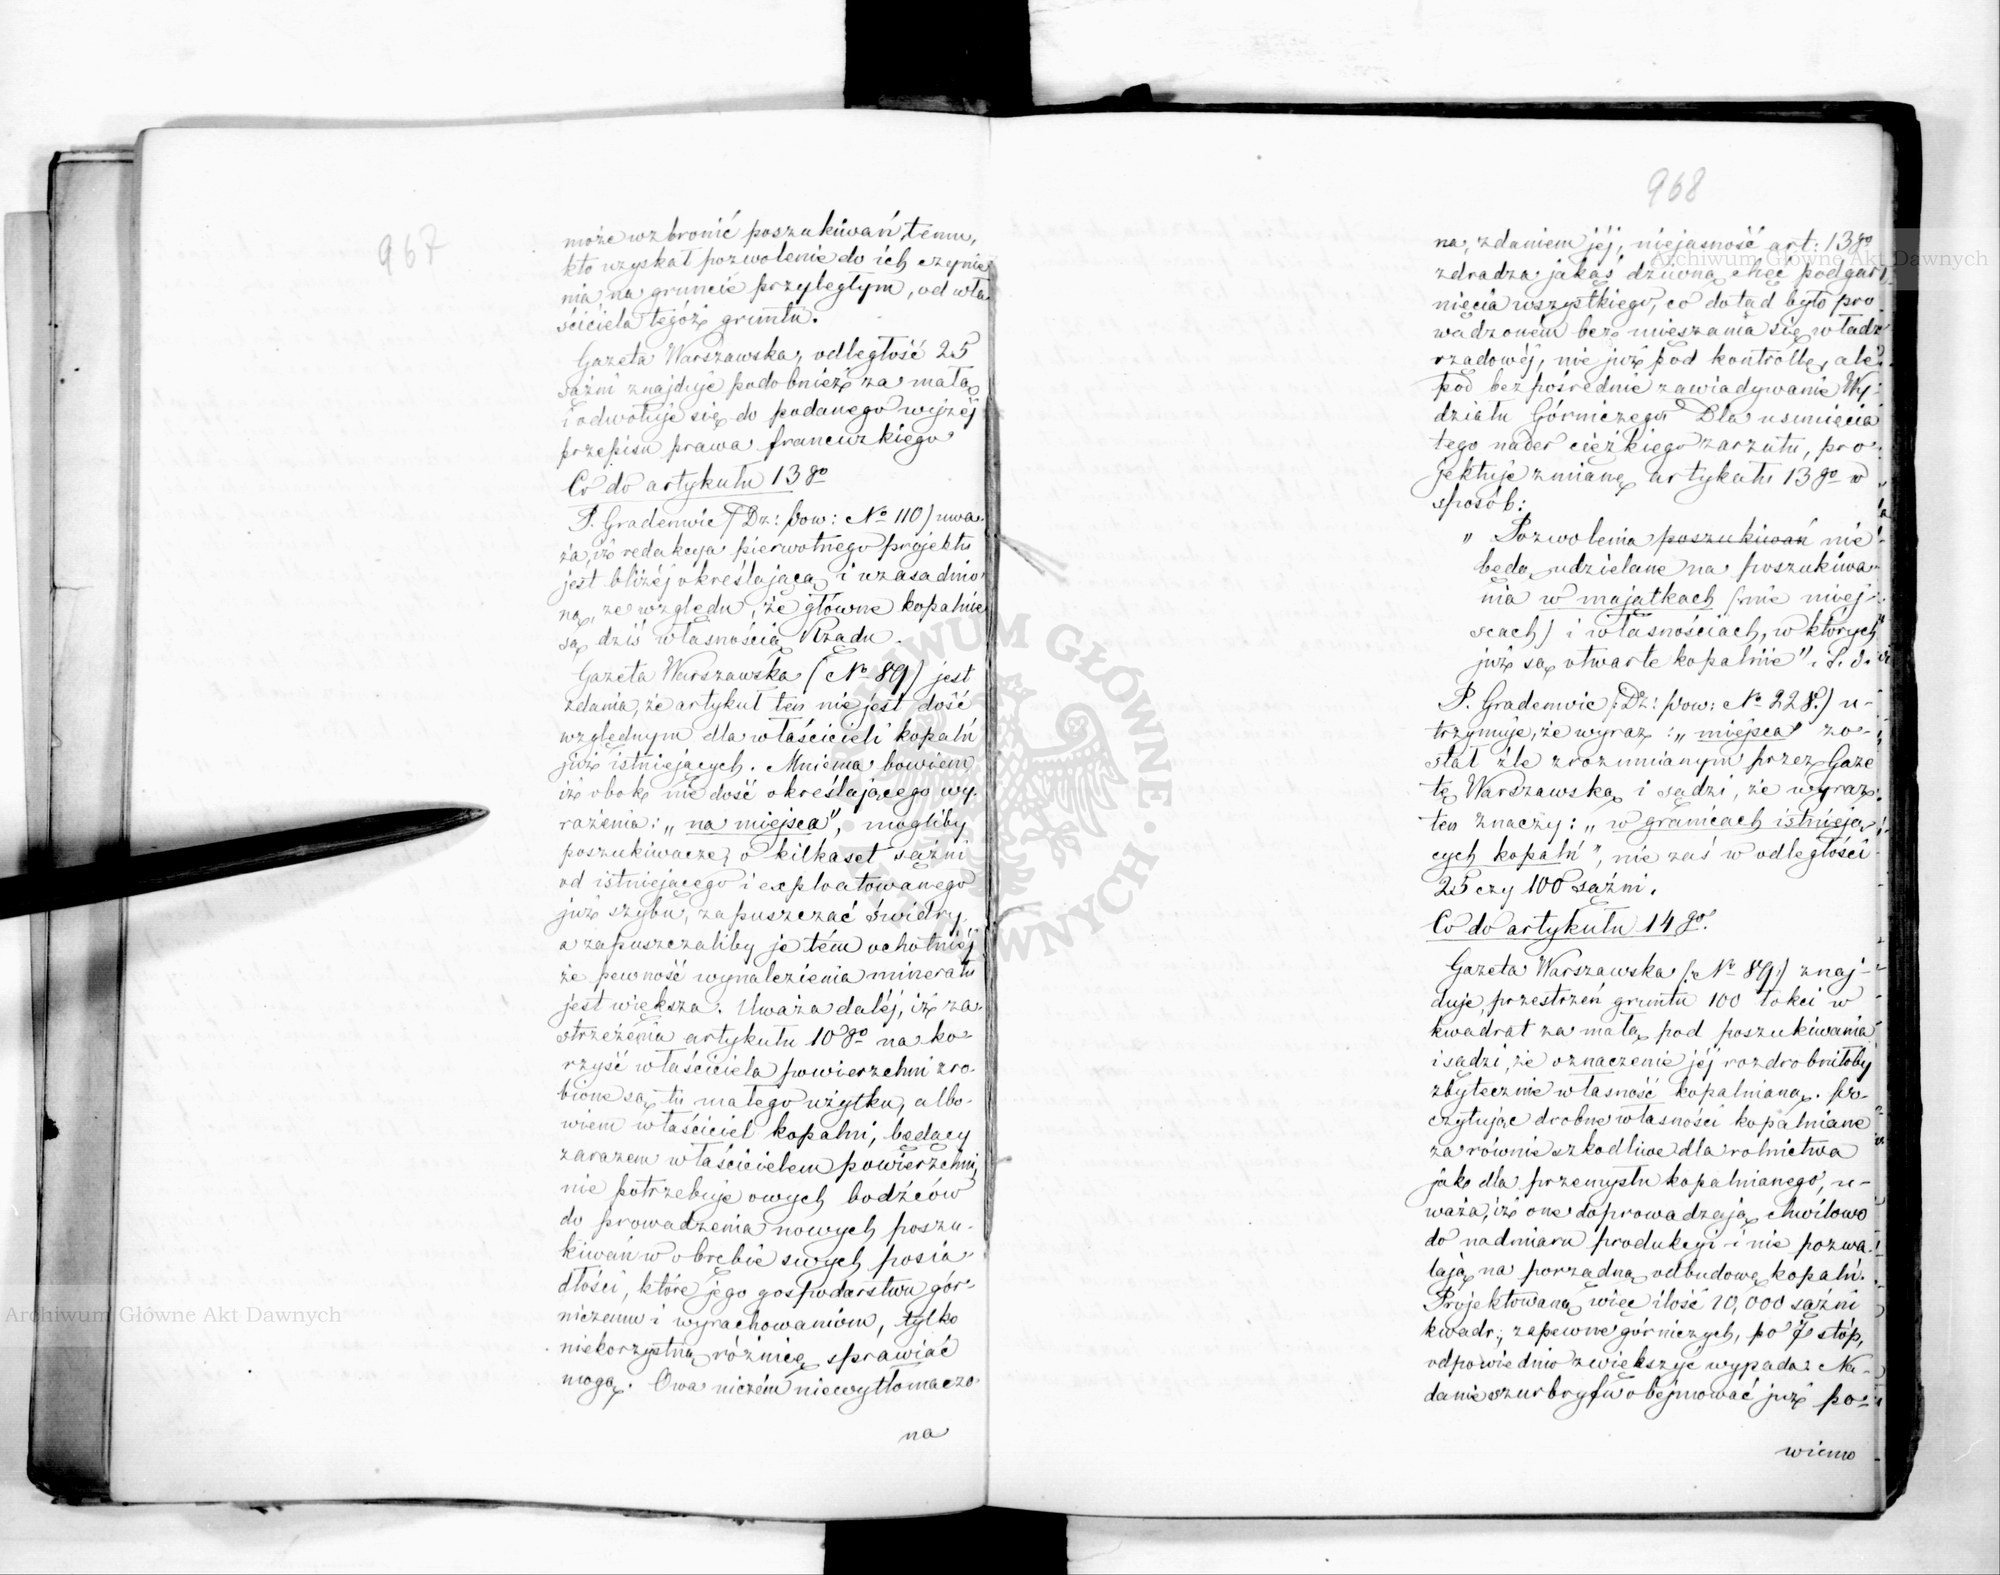 967
może wzbronić poszukiwań, temu,
kto uzyskał pozwolenie do ich czynie
nia, na gruncie przyległym, od wła
ściciela tegoż gruntu.
Gazeta Warszawska, odległość 25
sążni znajduje podobnież za małą
i odwołuje się do podanego wyżéj
przepisu prawa francuzkiego
Co do artykułu 13go
P. Gradenwic (Dz: pow: No 110) uwa
ża, iż redakcya pierwotnego projektu
jest bliżéj określającą i uzasadnio
ną, ze względu, że główne kopalnie
są dziś własnością Rządu.
Gazeta Warszawska (No 89) jest
zdania, że artykuł ten nie jest dość
względnym dla właścicieli kopalń
już istniejących. Mniema bowiem
iż obok nie dość określającego wy-
rażenia: „na miejsca", mogliby
poszukiwacze, o kilkaset sążni
od istniejącego i exploatowanego
już szybu, zapuszczać świdry,
a zapuszczaliby je tém ochotniéj
że pewność wynalezienia minerału
jest większa. Uważa daléj, iż za-
strzeżenia artykułu 10go na ko-
rzyść właściciela powierzchni zro-
bione są tu małego użytku, albo-
wiem właściciel kopalni, będący
zarazem właścicielem powierzchni,
nie potrzebuje owych bodźców
do prowadzenia nowych poszu-
kiwań w obrębie swych posia
dłości, które jego gospodarstwu gór-
niczemu i wyrachowaniom, tylko
niekorzystną różnicę sprawiać
mogą. Owa niczém niewytłomaczo
na
968
na, zdaniem jéj, niejasność art: 13go
zdradza jakąś dziwną chęć podgar
nięcia wszystkiego, co dotąd było pro
wadzoném bez mieszania się władz
rządowéj, nie już pod kontrollę, ale
pod bezpośrednie zawiadywanie Wy-
działu Górniczego. Dla usunięcia
tego nader ciężkiego zarzutu, pro-
jektuje zmianę artykułu 13go w
sposób:
„Pozwolenia poszukiwań nie
będą udzielane na poszukiwa
nia w majątkach (nie miej-
scach) i własnościach, w których
już są otwarte kopalnie".
P. Gradenwic (Dz: pow: No 228.) u-
trzymuje, że wyraz: „miejsca" zo-
stał źle zrozumianym przez Gaze
tę Warszawską i sądzi, że wyraz
ten znaczy: „w granicach istnieją
cych kopalń", nie zaś w odległości
25 czy 100 sążni.
Co do artykułu 14go
Gazeta Warszawska (No 89) znaj-
duje, przestrzeń gruntu 100 łokci w
kwadrat za małą pod poszukiwania
i sądzi, że oznaczenie jéj rozdrobniłoby
zbytecznie własność kopalnianą. Po-
czytując drobne własności kopalniane
za równie szkodliwe dla rolnictwa
jak dla przemysłu kopalnianego, u-
waża, iż one doprowadzają chwilowo
do nadmiaru produkcyi i nie pozwa-
lają na porządną odbudowę kopalń.
Projektowaną więc ilość 10,000 sążni
kwadr:, zapewne górniczych, po 7 stóp,
odpowiednio zwiększyć wypada: Na-
danie szurbryfu obejmować już po-
wiemo
Archiwum Główne Akt Dawnych
Archiwum Główne Akt Dawnych